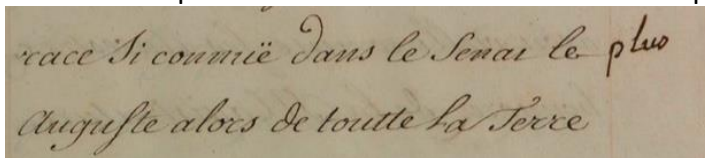 race Si connuë dans le Senat le plus
Auguste alors de toutte la Terre